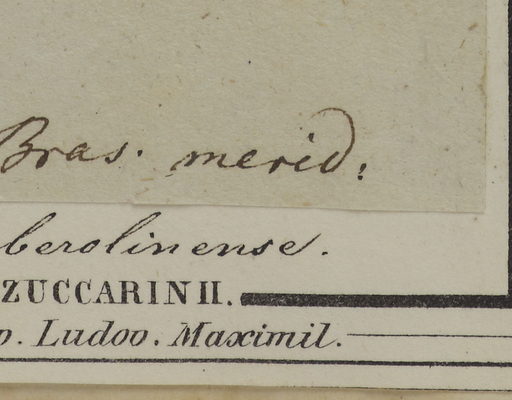 Bras. merid.
berolinense.
ZUCCARINII.
p. Ludov. Maximil.